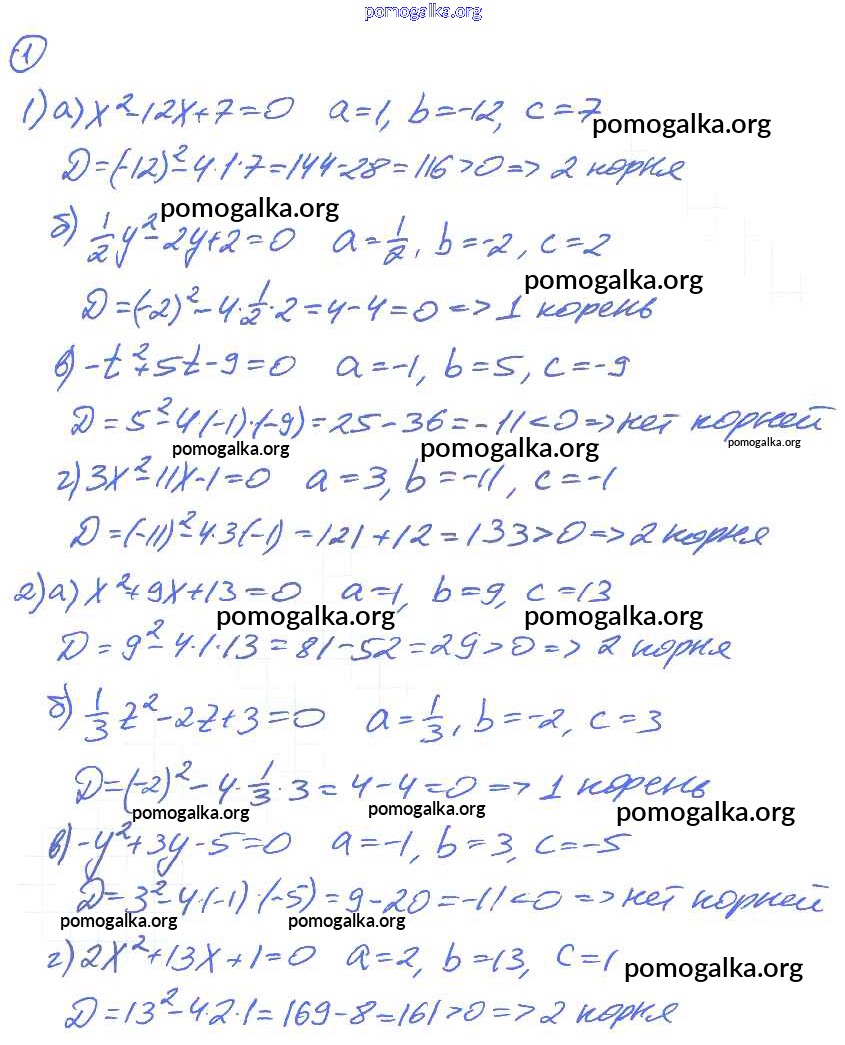 pomogalka.org
1
1) а) x²-12x+7=0 a=1, b=-12, c=7
pomogalka.org
D=(-12)²-4·1·7=144-28=116>0=>2 корня
pomogalka.org
б) 1/2y²-2y+2=0 a=1/2, b=-2, c=2
pomogalka.org
D=(-2)²-4·1/2·2=4-4=0=>1 корень
в) -t²+5t-9=0 a=-1, b=5, c=-9
D=5²-4(-1)·(-9)=25-36=-11<0=>нет корней
pomogalka.org pomogalka.org pomogalka.org
г) 3x²-11x-1=0 a=3, b=-11, c=-1
D=(-11)²-4·3(-1)=121+12=133>0=>2 корня
2) а) x²+9x+13=0 a=1, b=9, c=13
pomogalka.org pomogalka.org
D=9²-4·1·13=81-52=29>0=>2 корня
б) 1/3z²-2z+3=0 a=1/3, b=-2, c=3
D=(-2)²-4·1/3·3=4-4=0=>1 корень
pomogalka.org pomogalka.org pomogalka.org
в) -y²+3y-5=0 a=-1, b=3, c=-5
D=3²-4·(-1)·(-5)=9-20=-11<0=>нет корней
pomogalka.org pomogalka.org
г) 2x²+13x+1=0 a=2, b=13, c=1
pomogalka.org
D=13²-4·2·1=169-8=161>0=>2 корня